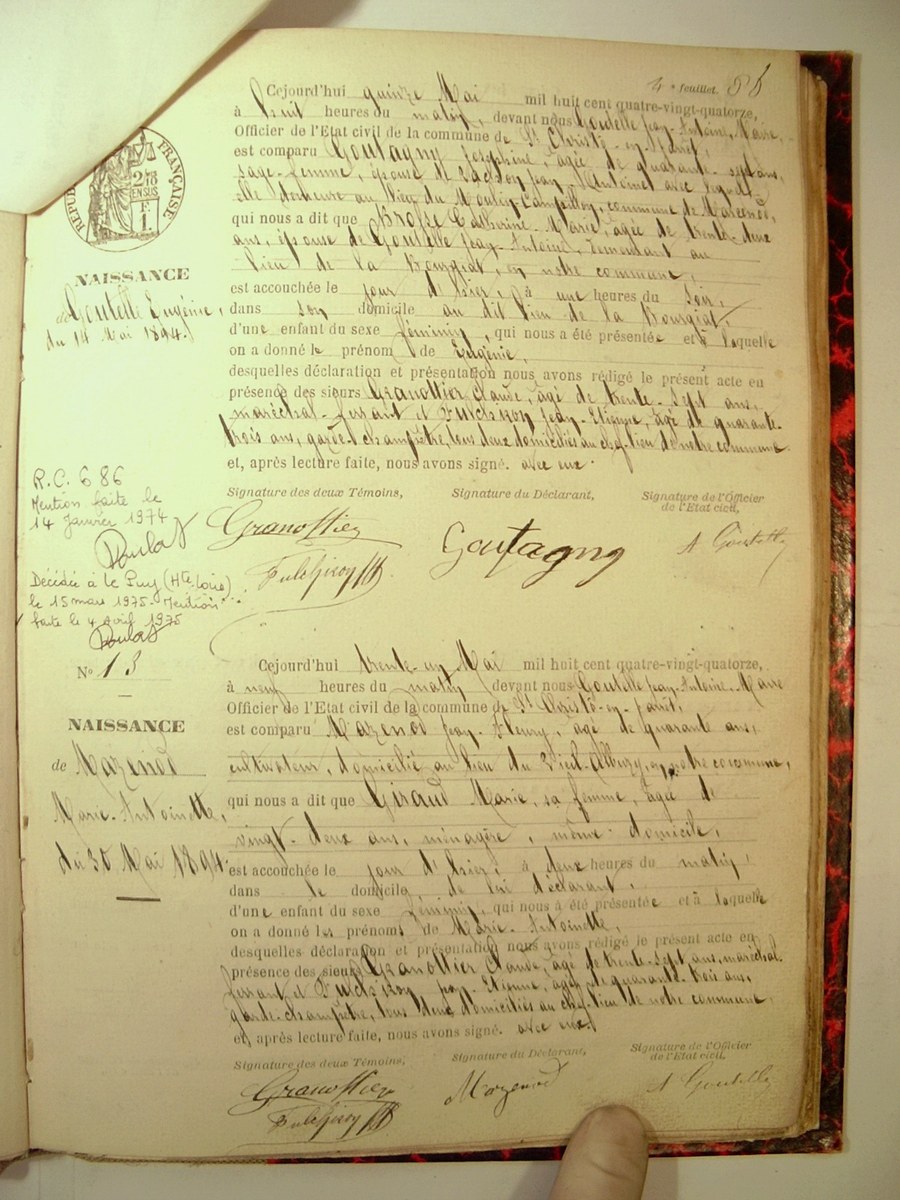 4e feuillet. 86
Cejourd'hui quinze Mai mil huit cent quatre-vingt-quatorze,
à huit heures du matin, devant nous Goutelle Jean-Antoine, Maire,
Officier de l'Etat civil de la commune de St Christô-en-Jarret,
est comparu Goutagny Joséphine, âgée de quarante-sept ans,
sage-femme, épouse de Jean Antoine avec lequel
elle demeure au lieu du Moulin-Campillon, commune de Marcenod,
qui nous a dit que Brosse Catherine-Marie, âgée de trente-deux
ans, épouse de Goutelle Jean-Antoine, demeurant au
lieu de la Bourgiat, en notre commune,
est accouchée le jour d'hier, à une heures du soir,
dans son domicile au dit lieu de la Bourgiat,
d'une enfant du sexe féminin, qui nous a été présentée et à laquelle
on a donné le prénom de Eugénie,
desquelles déclaration et présentation nous avons rédigé le présent acte en
présence des sieurs Granottier Claude, âgé de trente-sept ans,
maréchal-ferrant et Fulchiron Jean-Etienne, âgé de quarante-
trois ans, garde-champêtre, tous deux domiciliés au chef-lieu de notre commune
et, après lecture faite, nous avons signé. avec eux.
Signature des deux Témoins, Signature du Déclarant, Signature de l'Officier
de l'Etat civil,
Granottier
Goutagny
A Goutelle
Fulchiron
REPUB FRANÇAISE
NAISSANCE
de Goutelle Eugénie,
du 14 Mai 1894.
R.C. 686
Mention faite le
14 Janvier 1974
Décédée à Le Puy (Hte Loire)
le 15 mars 1975. Mention
faite le 4 avril 1975
No 13
NAISSANCE
de Mazenod
Marie-Antoinette,
du 30 Mai 1894.
Cejourd'hui trente-un Mai mil huit cent quatre-vingt-quatorze,
à neuf heures du matin devant nous Goutelle Jean-Antoine-Maire
Officier de l'Etat civil de la commune de St Christô-en-Jarret,
est comparu Mazenod Jean-Fleury, âgé de quarante ans,
cultivateur, domicilié au lieu du en notre commune,
qui nous a dit que Giraud Marie, sa femme, âgée de
vingt-deux ans, ménagère, même domicile,
est accouchée le jour d'hier, à deux heures du matin,
dans le domicile de lui déclarant,
d'une enfant du sexe féminin, qui nous a été présentée et à laquelle
on a donné les prénoms de Marie-Antoinette,
desquelles déclaration et présentation nous avons rédigé le présent acte en
présence des sieurs Granottier Claude, âgé de trente-sept ans, maréchal
ferrant, et Fulchiron Jean-Etienne, âgé de quarante-trois ans,
garde-champêtre, tous deux domiciliés au chef-lieu de notre commune,
et, après lecture faite, nous avons signé. avec eux.
Signature des deux Témoins, Signature du Déclarant, Signature de l'Officier
de l'Etat civil,
Granottier
Mazenod
A Goutelle
Fulchiron